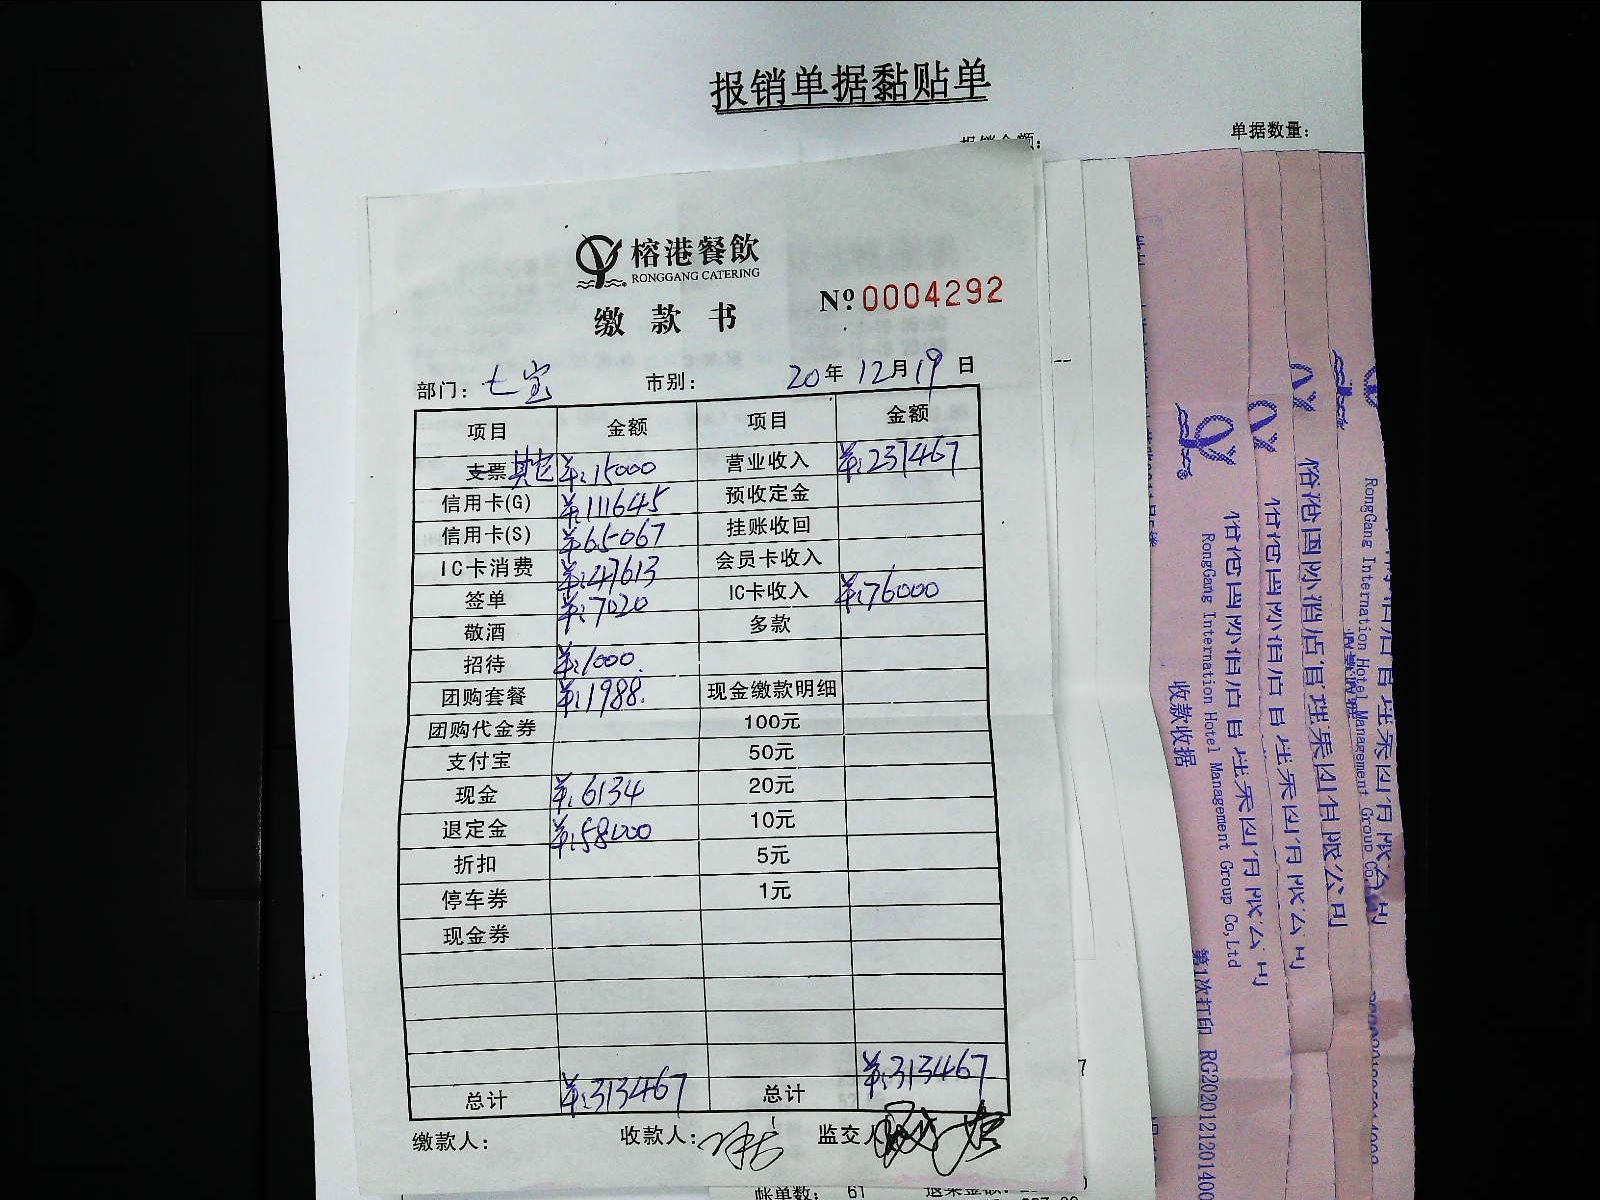 报销单据黏贴单
单据数量：
榕港餐飲
RONGGANG CATERING
缴 款 书
Nº 0004292
部门： 七宝 市别： 20 年 12 月 19 日
项目 金额 项目 金额
支票 ¥:15000 营业收入 ¥:237467
信用卡(G) ¥:111645 预收定金
信用卡(S) ¥:65067 挂账收回
IC卡消费 ¥:47613 会员卡收入
签单 ¥:7020 IC卡收入 ¥:76000
敬酒 多款
招待 ¥:1000.
团购套餐 ¥:1988. 现金缴款明细
团购代金券 100元
支付宝 50元
现金 ¥:6134 20元
退定金 ¥:58000 10元
折扣 5元
停车券 1元
现金券
总计 ¥:313467 总计 ¥:313467
缴款人： 收款人： 监交人
帐单数： 61
收款收据
RongGang International Hotel Management Group Co,Ltd
第1次打印 RG2020121201400
RongGang International Hotel Management Group Co,